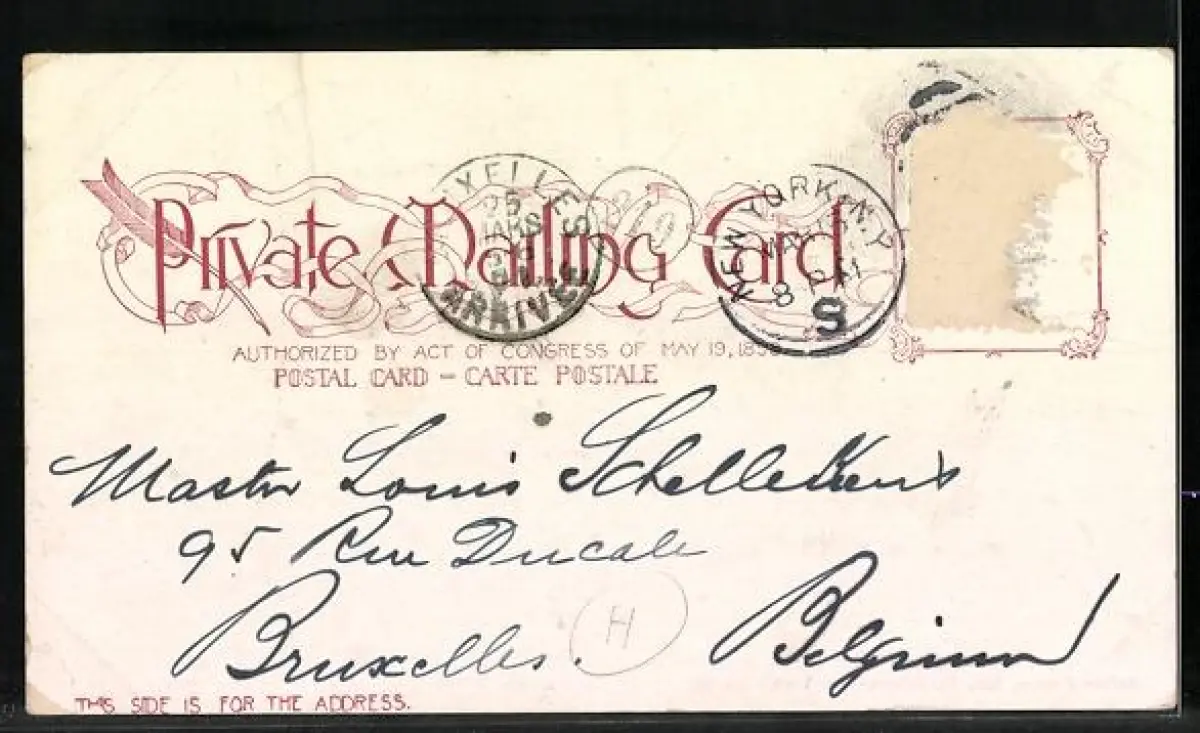 Private Mailing Card
AUTHORIZED BY ACT OF CONGRESS OF MAY 19, 1898.
POSTAL CARD – CARTE POSTALE
NEW YORK, N.Y.
8 PM
S
25
MARS
ARRIVÉE
Master Louis Schellekens
95 Rue Ducale
Bruxelles. Belgium
H
THIS SIDE IS FOR THE ADDRESS.